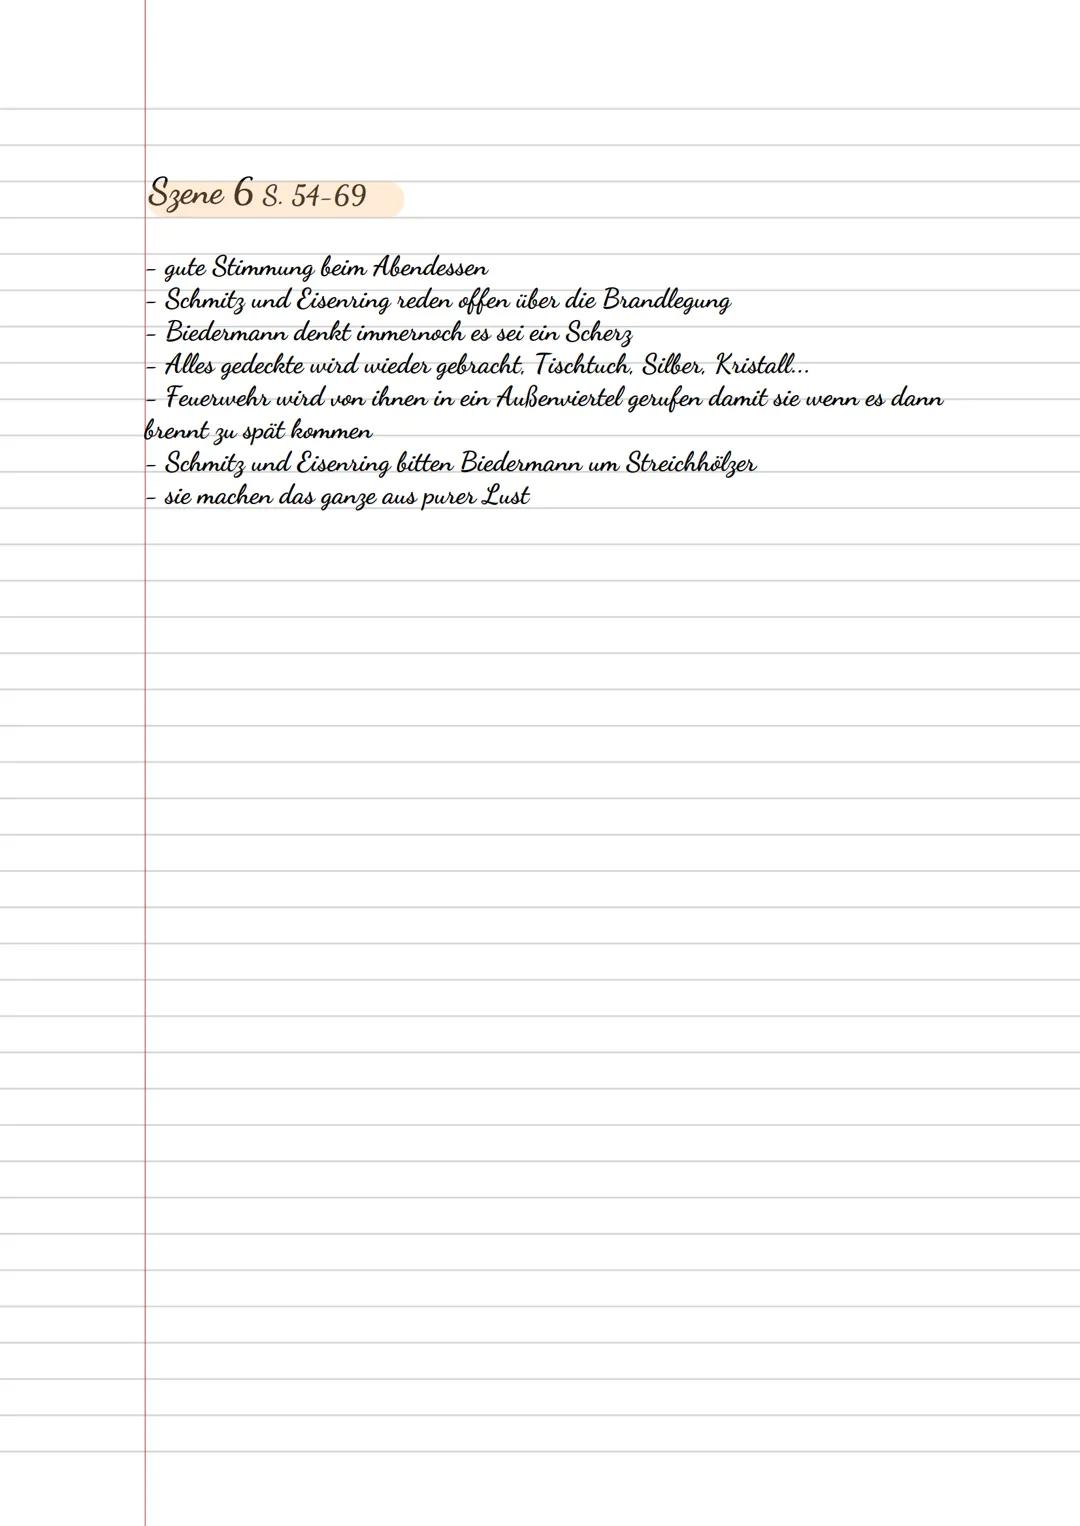 Szene 6 S. 54-69
- gute Stimmung beim Abendessen
- Schmitz und Eisenring reden offen über die Brandlegung
- Biedermann denkt immernoch es sei ein Scherz
- Alles gedeckte wird wieder gebracht, Tischtuch, Silber, Kristall...
- Feuerwehr wird von ihnen in ein Außenviertel gerufen damit sie wenn es dann
brennt zu spät kommen
- Schmitz und Eisenring bitten Biedermann um Streichhölzer
- sie machen das ganze aus purer Lust